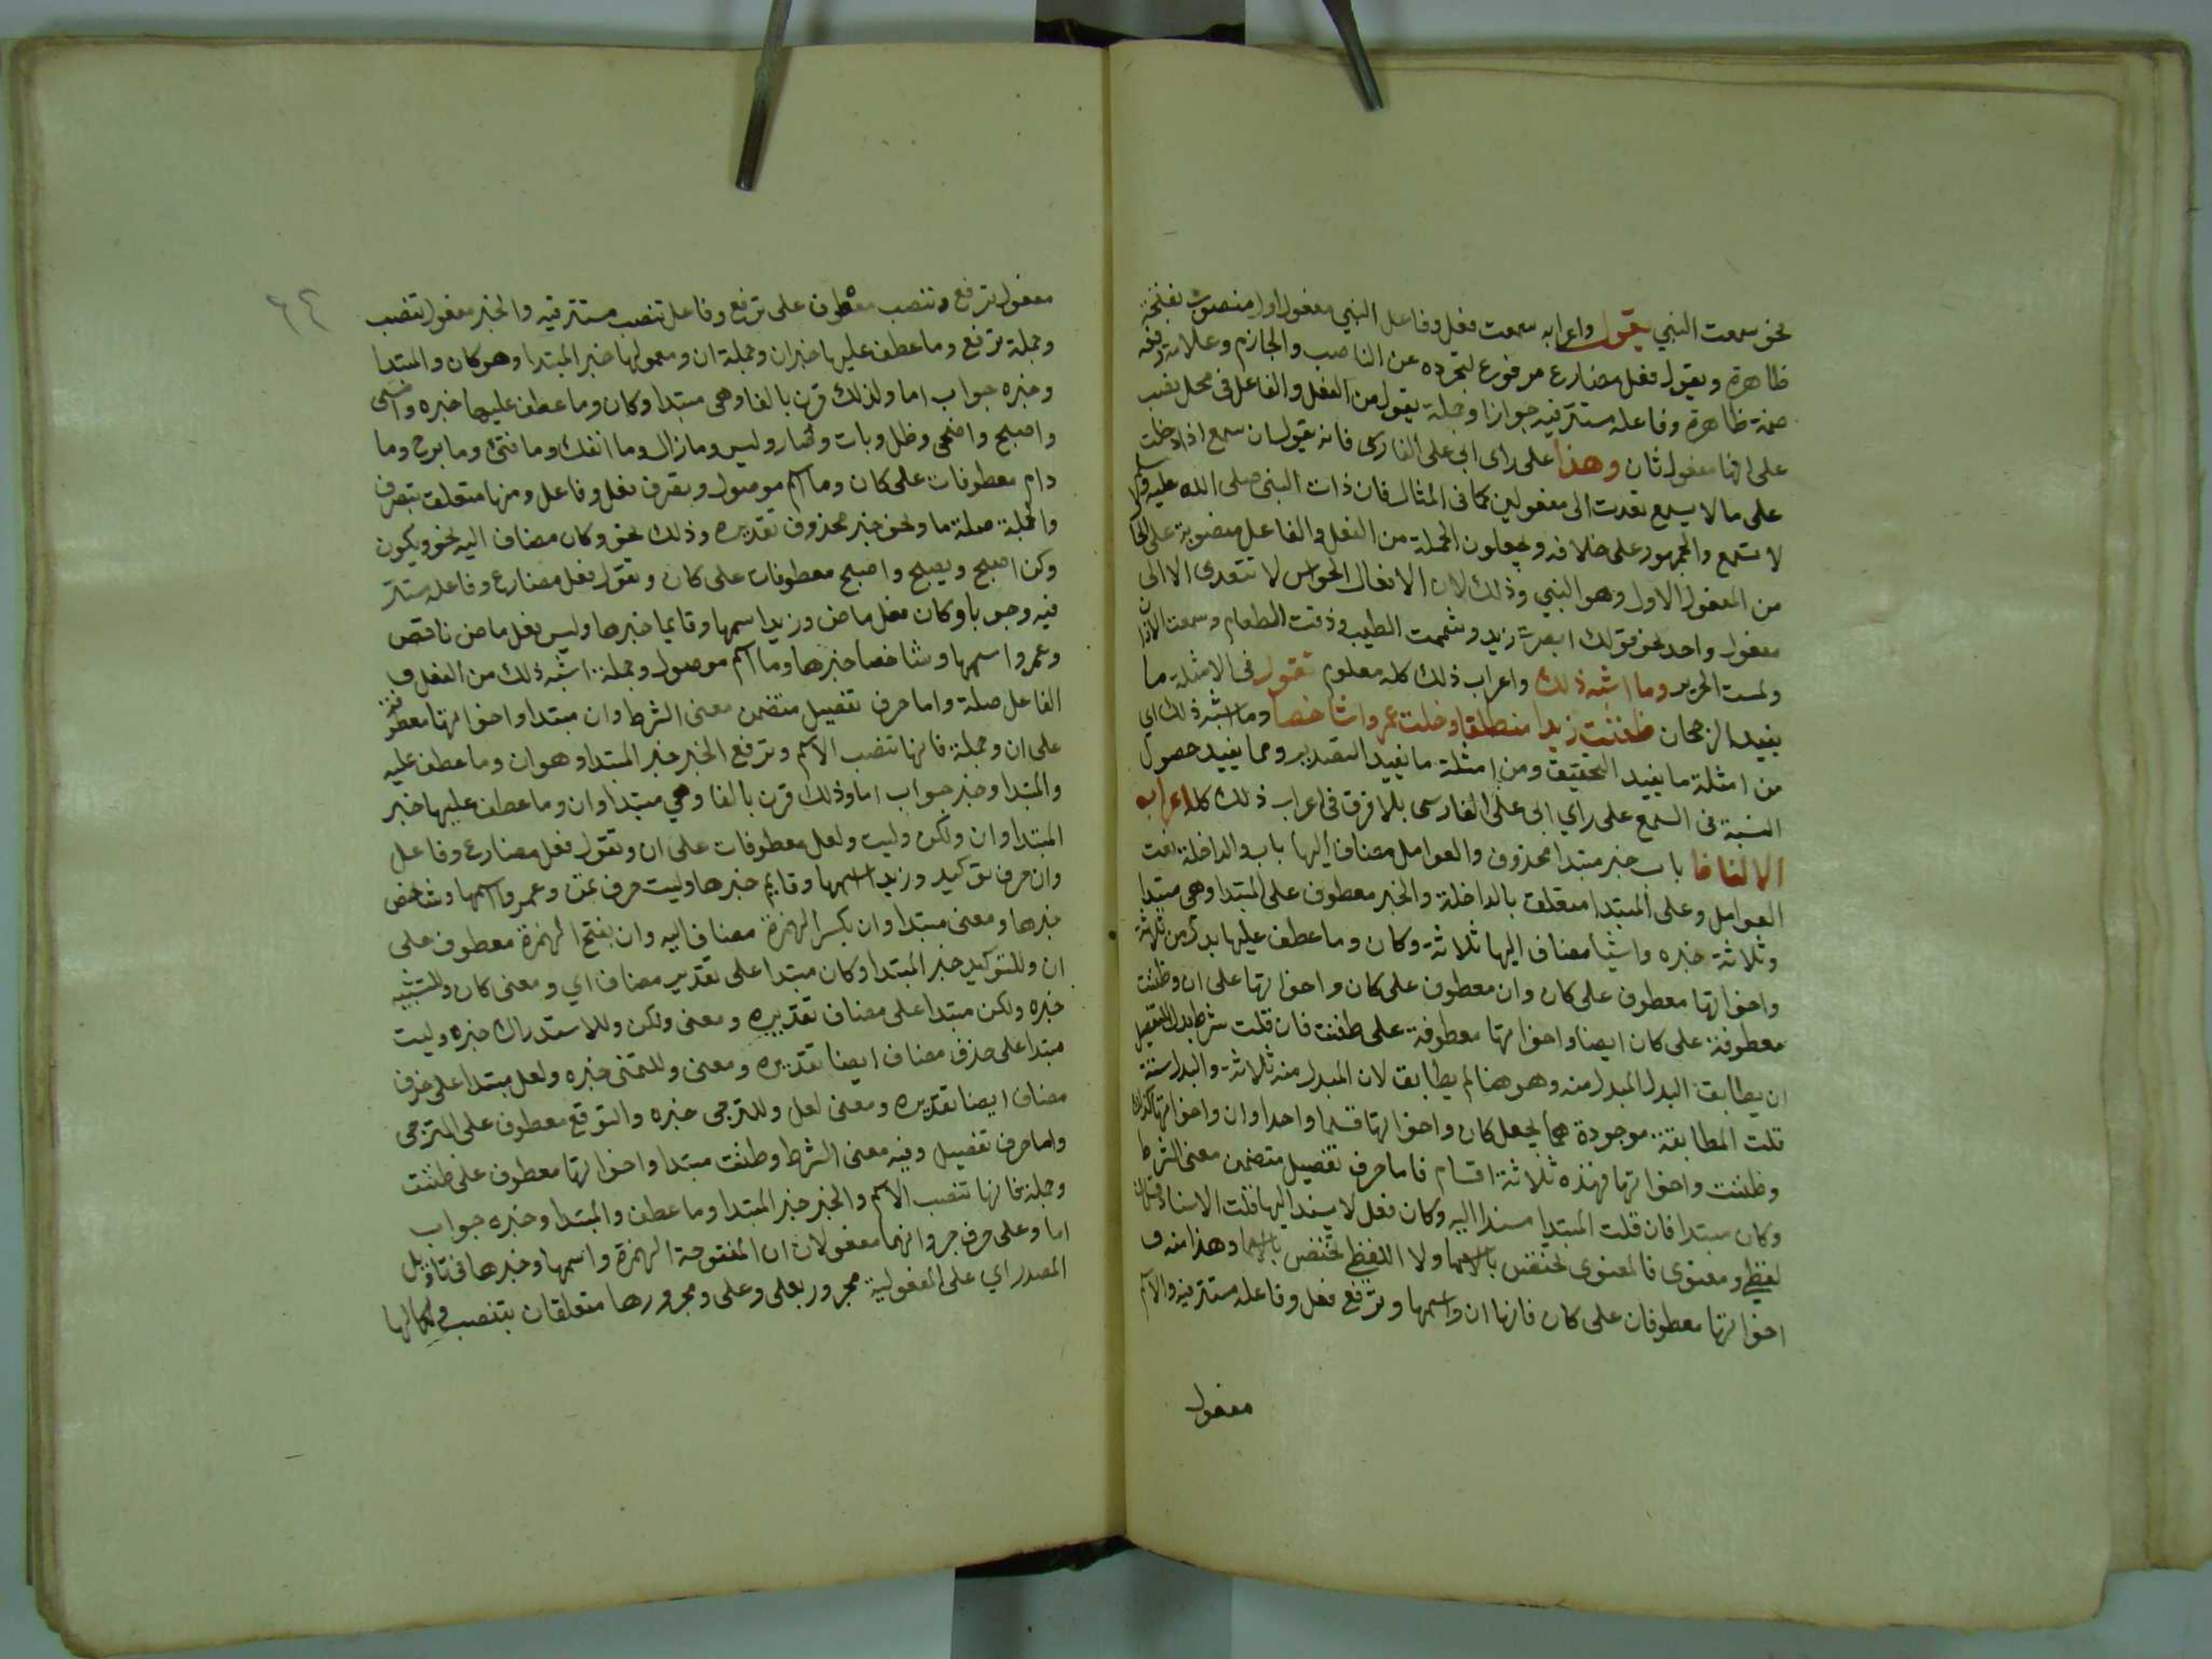 نحو سمعت النبي يقول واعرابه سمعت فعل وفاعل النبي مفعول اول منصوب بفتحة
ظاهرة ويقول فعل مضارع مرفوع لتجرده عن الناصب والجازم وعلامة رفعه
ضمة ظاهرة وفاعله مستتر فيه جوازا وجملة يقول من الفعل والفاعل في محل نصب
على انها مفعول ثان وهذا على راى ابى على الفارسى فانه يقول ان سمع اذا دخلت
على ما لا يسمع تعدت الى مفعولين كما في المثال فان ذات النبى صلى الله عليه وسلم
لا تسمع والجمهور على خلافه ويجعلون الجملة من الفعل والفاعل منصوبة على الحا
من المفعول الاول وهو النبي وذلك لان الافعال الحواس لا تتعدى الا الى
مفعول واحد نحو قولك ابصرت زيد وشممت الطيب وذقت الطعام وسمعت الاذان
ولمست الحرير وما اشبه ذلك واعراب ذلك كله معلوم تقول في الامثلة ما
يفيد الرجحان ظننت زيدا منطلقا وخلت عمروا شاخصا وما اشبه ذلك اى
من امثلة ما يفيد التحقيق ومن امثلة ما يفيد التصيير ومما يفيد حصول
النسبة في السمع على راي ابى على الفارسى بلا فرق في اعراب ذلك كله اعراب
الالفاظ باب خبر مبتدا محذوف والعوامل مضاف اليها باب والداخلة نعت
العوامل وعلى المبتدا متعلق بالداخلة والخبر معطوف على المبتدا وهى مبتدا
وثلاثة خبره واشيأ مضاف اليها ثلاثة وكان وما عطف عليها بدل من ثلاثة
واخواتها معطوف على كان وان معطوف على كان واخواتها على ان وظننت
معطوفة على كان ايضا واخواتها معطوفة على ظننت فان قلت شرط بدل التفصيل
ان يطابق البدل المبدل منه وهو هنا لم يطابق لان المبدل منه ثلاثة والبدل ستة
قلت المطابقة موجودة هما بجعل كان واخواتها قسما واحدا وان واخواتها كذلك
وظننت واخواتها فهذه ثلاثة اقسام فاما حرف تفصيل متضمن معنى الشرط
وكان مبتدا فان قلت المبتدا مسندا اليه وكان فعل لا يسند اليها قلت الاسناد قسمان
لفظي ومعنوى فالمعنوى تختص بالاسما ولا اللفظي تختص بالاسما وهذا منه و
اخواتها معطوفان على كان فانها ان واسمها وترفع فعل وفاعله مستتر فيه والاسم
مفعول
٦٤
مفعول ترفع وتنصب معطوف على ترفع وفاعل تنصب مستتر فيه والخبر مفعول تنصب
وجملة ترفع وما عطف عليها خبر ان وجملة ان ومعمولها خبر المبتدا وهو كان والمبتدا
وخبره جواب اما ولذلك قرن بالفا وهى مبتدا وكان وما عطف عليها خبره وامسى
واصبح واضحى وظل وبات وصار وليس وما زال وما انفك وما فتئ وما برح وما
دام معطوفات على كان وما اسم موصول وتصرف فعل وفاعل ومنها متعلق بتصرف
والجملة صلة ما ونحو خبر محذوف تقديره وذلك نحو وكان مضاف اليه نحو ويكون
وكن اصبح ويصبح واصبح معطوفات على كان وتقول فعل مضارع وفاعله مستتر
فيه وجوبا وكان فعل ماض وزيد اسمها وقايما خبرها وليس فعل ماض ناقص
وعمروا اسمها وشاخصا خبرها وما اسم موصول وجملة اشبه ذلك من الفعل و
الفاعل صلة واما حرف تفصيل متضمن معنى الشرط وان مبتدا واخواتها معطوفة
على ان وجملة فانها تنصب الاسم وترفع الخبر خبر المبتدا وهو ان وما عطف عليه
والمبتدا وخبر جواب اما وذلك قرن بالفا وهي مبتدا وان وما عطف عليها خبر
المبتدا وان ولكن وليت ولعل معطوفات على ان وتقول فعل مضارع وفاعل
وان حرف توكيد وزيد اسمها وقايم خبرها وليت حرف تمن وعمروا اسمها وشاخص
خبرها ومعنى مبتدا وان بكسر الهمزة مضاف اليه وان بفتح الهمزة معطوف على
ان وللتوكيد خبر المبتدا وكان مبتدا على تقدير مضاف اي ومعنى كان وللتشبيه
خبره ولكن مبتدا على مضاف تقديره ومعنى ولكن وللاستدراك خبره وليت
مبتدا على حذف مضاف ايضا تقديره ومعنى وللتمنى خبره ولعل مبتدا على حذف
مضاف ايضا تقديره ومعنى لعل وللترجى خبره والتوقع معطوف على الترجى
واما حرف تفصيل وفيه معنى الشرط وظننت مبتدا واخواتها معطوف على ظننت
وجملة فانها تنصب الاسم والخبر خبر المبتدا وما عطف والمبتدا وخبره جواب
اما وعلى حرف جر وانهما مفعولان ان المفتوحة الهمزة واسمها وخبرها فى تاويل
المصدر اي على المفعولية مجرور بعلى وعلى ومجرورها متعلقان بتنصب ولكمالها